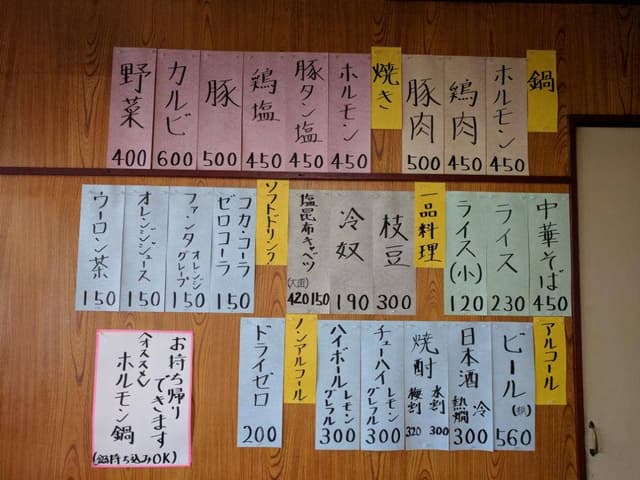 鍋
ホルモン 450
鶏肉 450
豚肉 500
焼き
ホルモン 450
豚タン塩 450
鶏塩 450
豚 500
カルビ 600
野菜 400
中華そば 450
ライス 230
ライス(小) 120
一品料理
枝豆 300
冷奴 190
塩昆布キャベツ
(大皿)
420 150
ソフトドリンク
コカ・コーラ
ゼロコーラ
150
ファンタ オレンジ
グレープ
150
オレンジジュース 150
ウーロン茶 150
アルコール
ビール(瓶) 560
日本酒 冷
熱燗
300
焼酎
水割 300
梅割 320
チューハイ レモン
グレフル
300
ハイボール レモン
グレフル
300
ノンアルコール
ドライゼロ 200
お持ち帰り
できます
〈オススメ〉
ホルモン鍋
(鍋持ち込みOK)